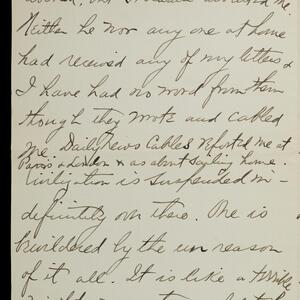 me.
Neither he nor any one at home
had received any of my letters &
I have had no word from them
though they wrote and cabled
me. Daily News Cables reported me at
Paris & London & as about sailing home.
Civilization is suspended in-
definitely over there. One is
bewildered by the un reason
of it all. It is like a terrible